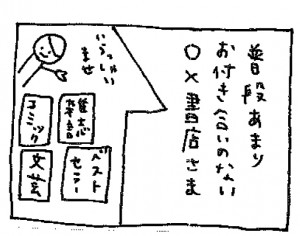 普段あまり
お付き合いのない
○×書店さま
いらっしゃい
ませ
雑誌
コミック
ベスト
セラー
文芸